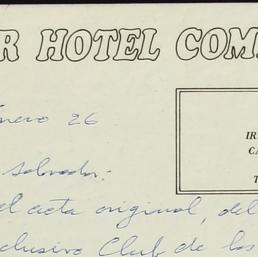 R HOTEL COM
nero 26
IR
CA
T
Salvador:
el acta original, del
clusivo Club de los